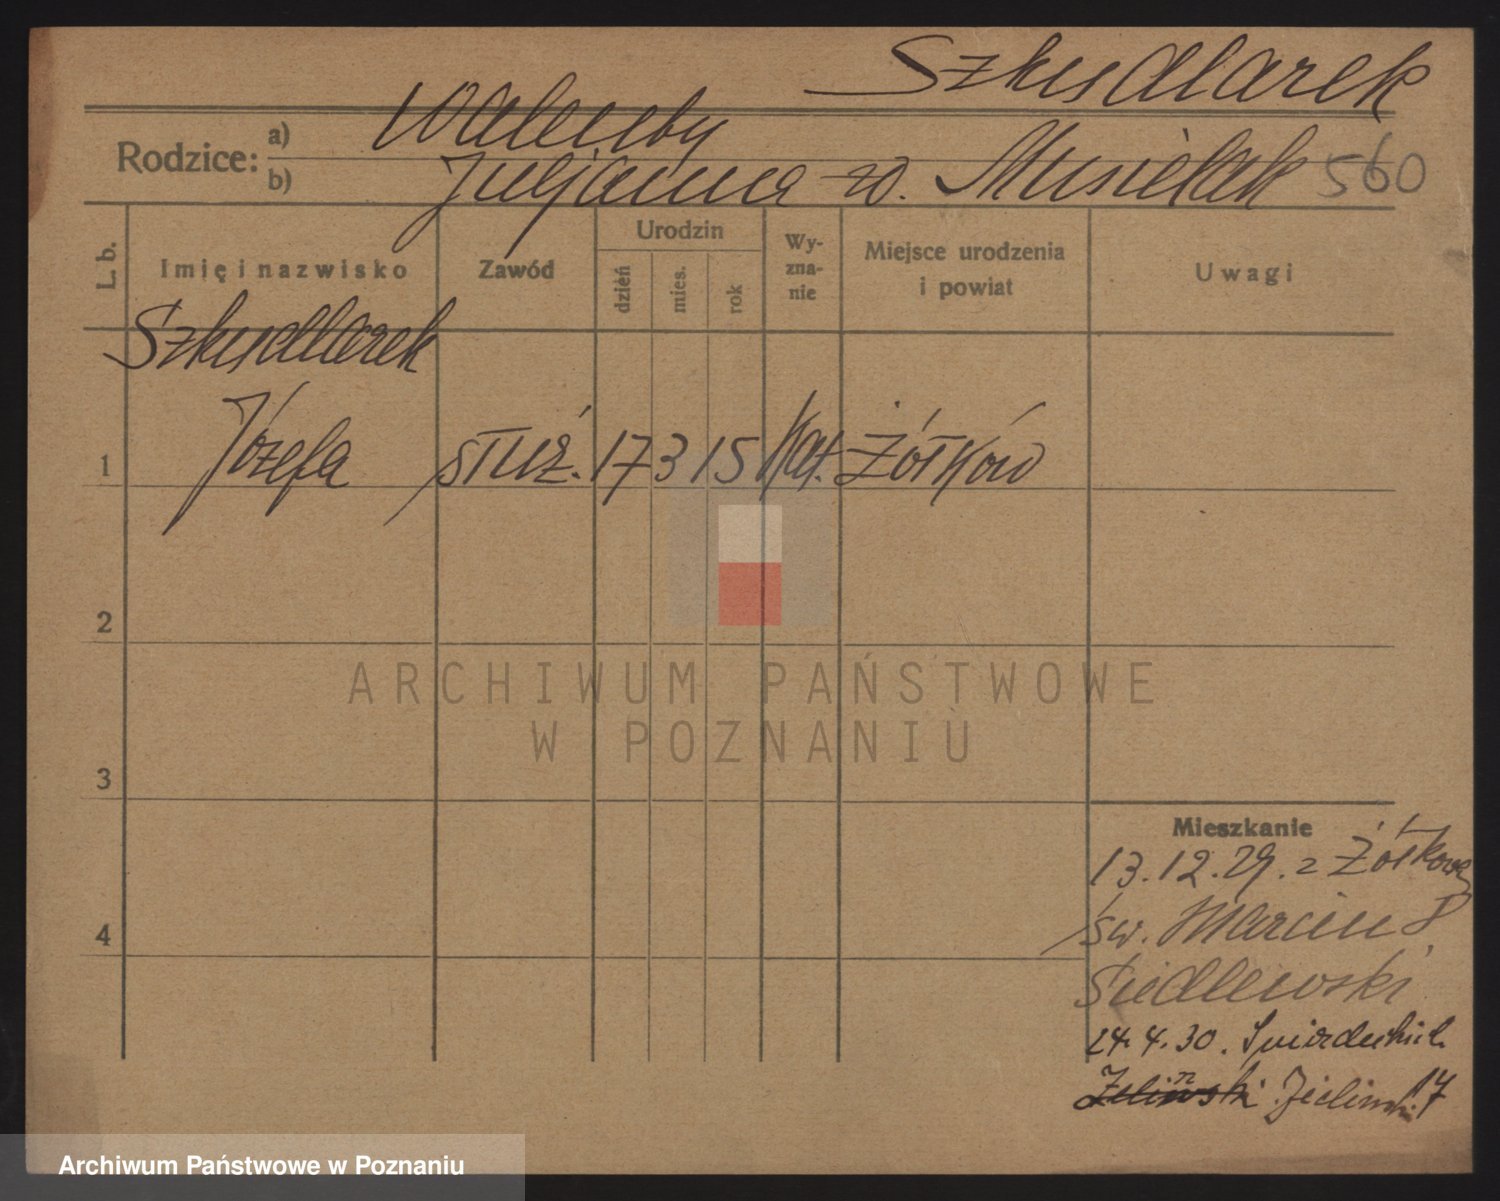 Szkudlarek
Rodzice: a) Walenty
b) Juljanna z d. Musielak 560
L. b. Imię i nazwisko Zawód Urodzin dzień mies. rok Wy-zna-nie Miejsce urodzenia i powiat Uwagi
Szkudlarek
1 Józefa służ. 17 3 15 Kat. Żółków
2
ARCHIWUM PAŃSTWOWE
W POZNANIU
3
Mieszkanie
13.12.29. z Żółkowa
św. Marcin 8
4
Siedlewski
24.4.30.
Zieliński 17
Archiwum Państwowe w Poznaniu